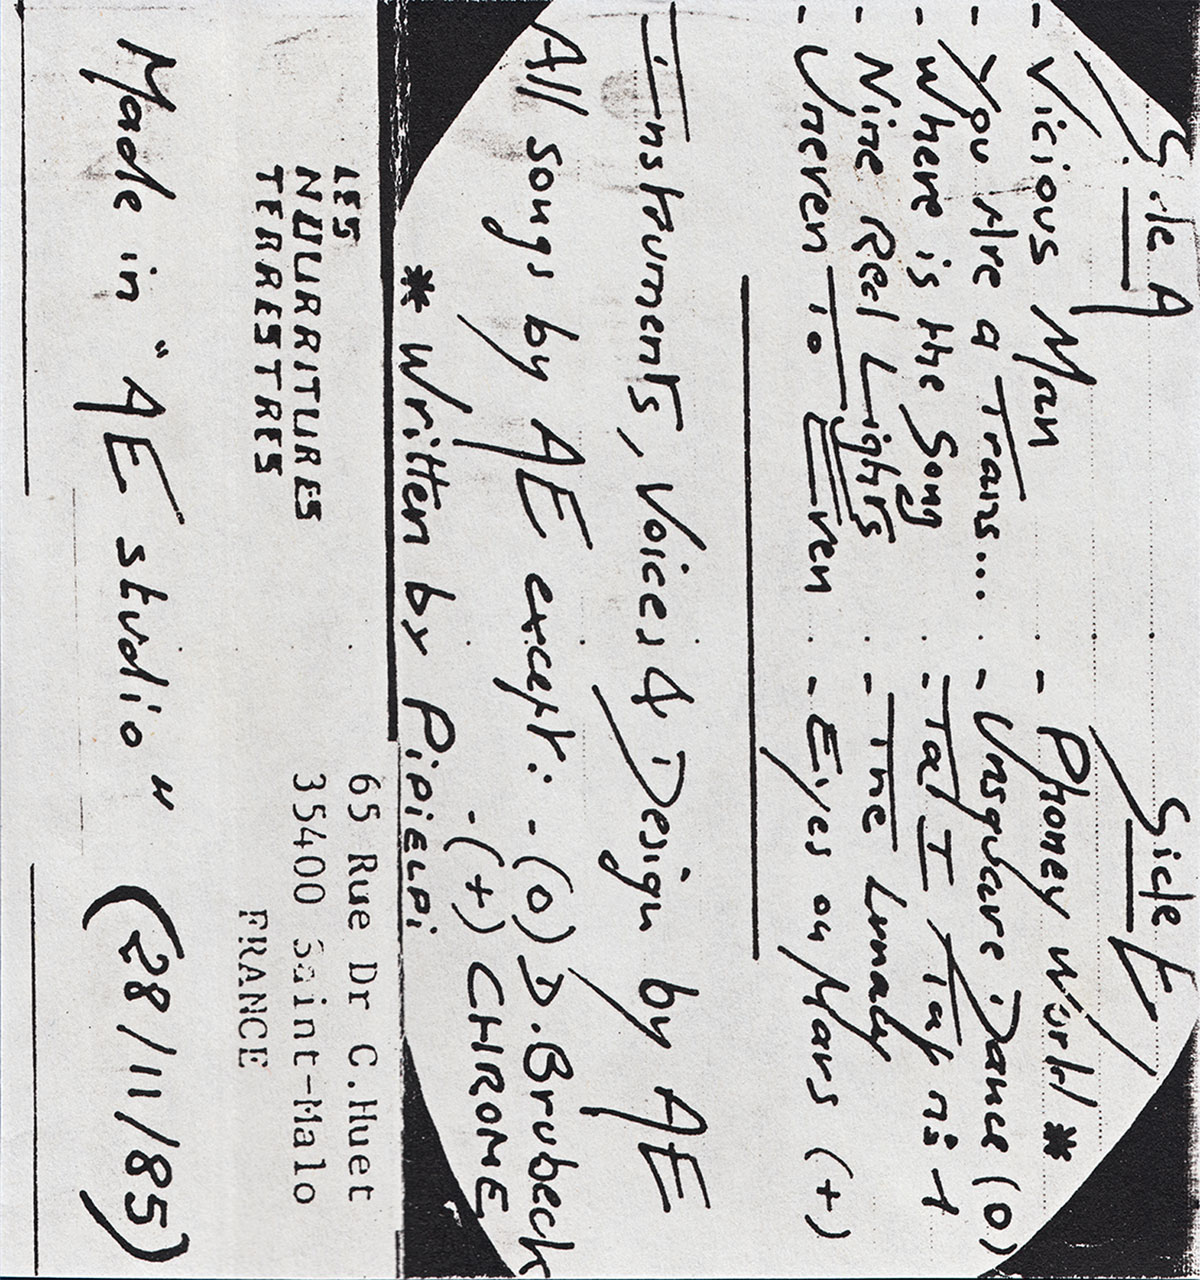 Side A
- Vicious Man
- You Are a Trans...
- Where is the Song
- Nine Red Lights
- Uneven To Even
Side E
- Phoney World *
- Unsquare Dance (o)
- Tal I Tap n: 1
- The Lunacy
- Eyes on Mars (+)
Instruments, Voices & Design by AE
All songs by AE except: - (o) D.Brubeck
- (+) CHROME
* Written by PiPiELPi
LES
NOURRITURES
TERRESTRES
65 Rue Dr C.Huet
35400 Saint-Malo
FRANCE
Made in "AE studio" (28/11/85)